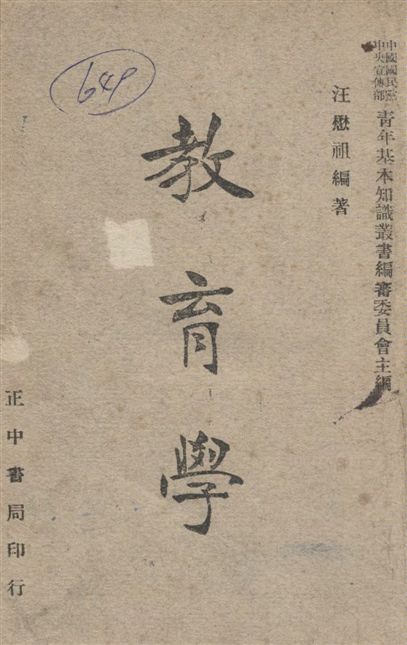 中國國民黨中央宣傳部青年基本知識叢書編審委員會主編
汪懋祖編著
教育學
正中書局印行
649